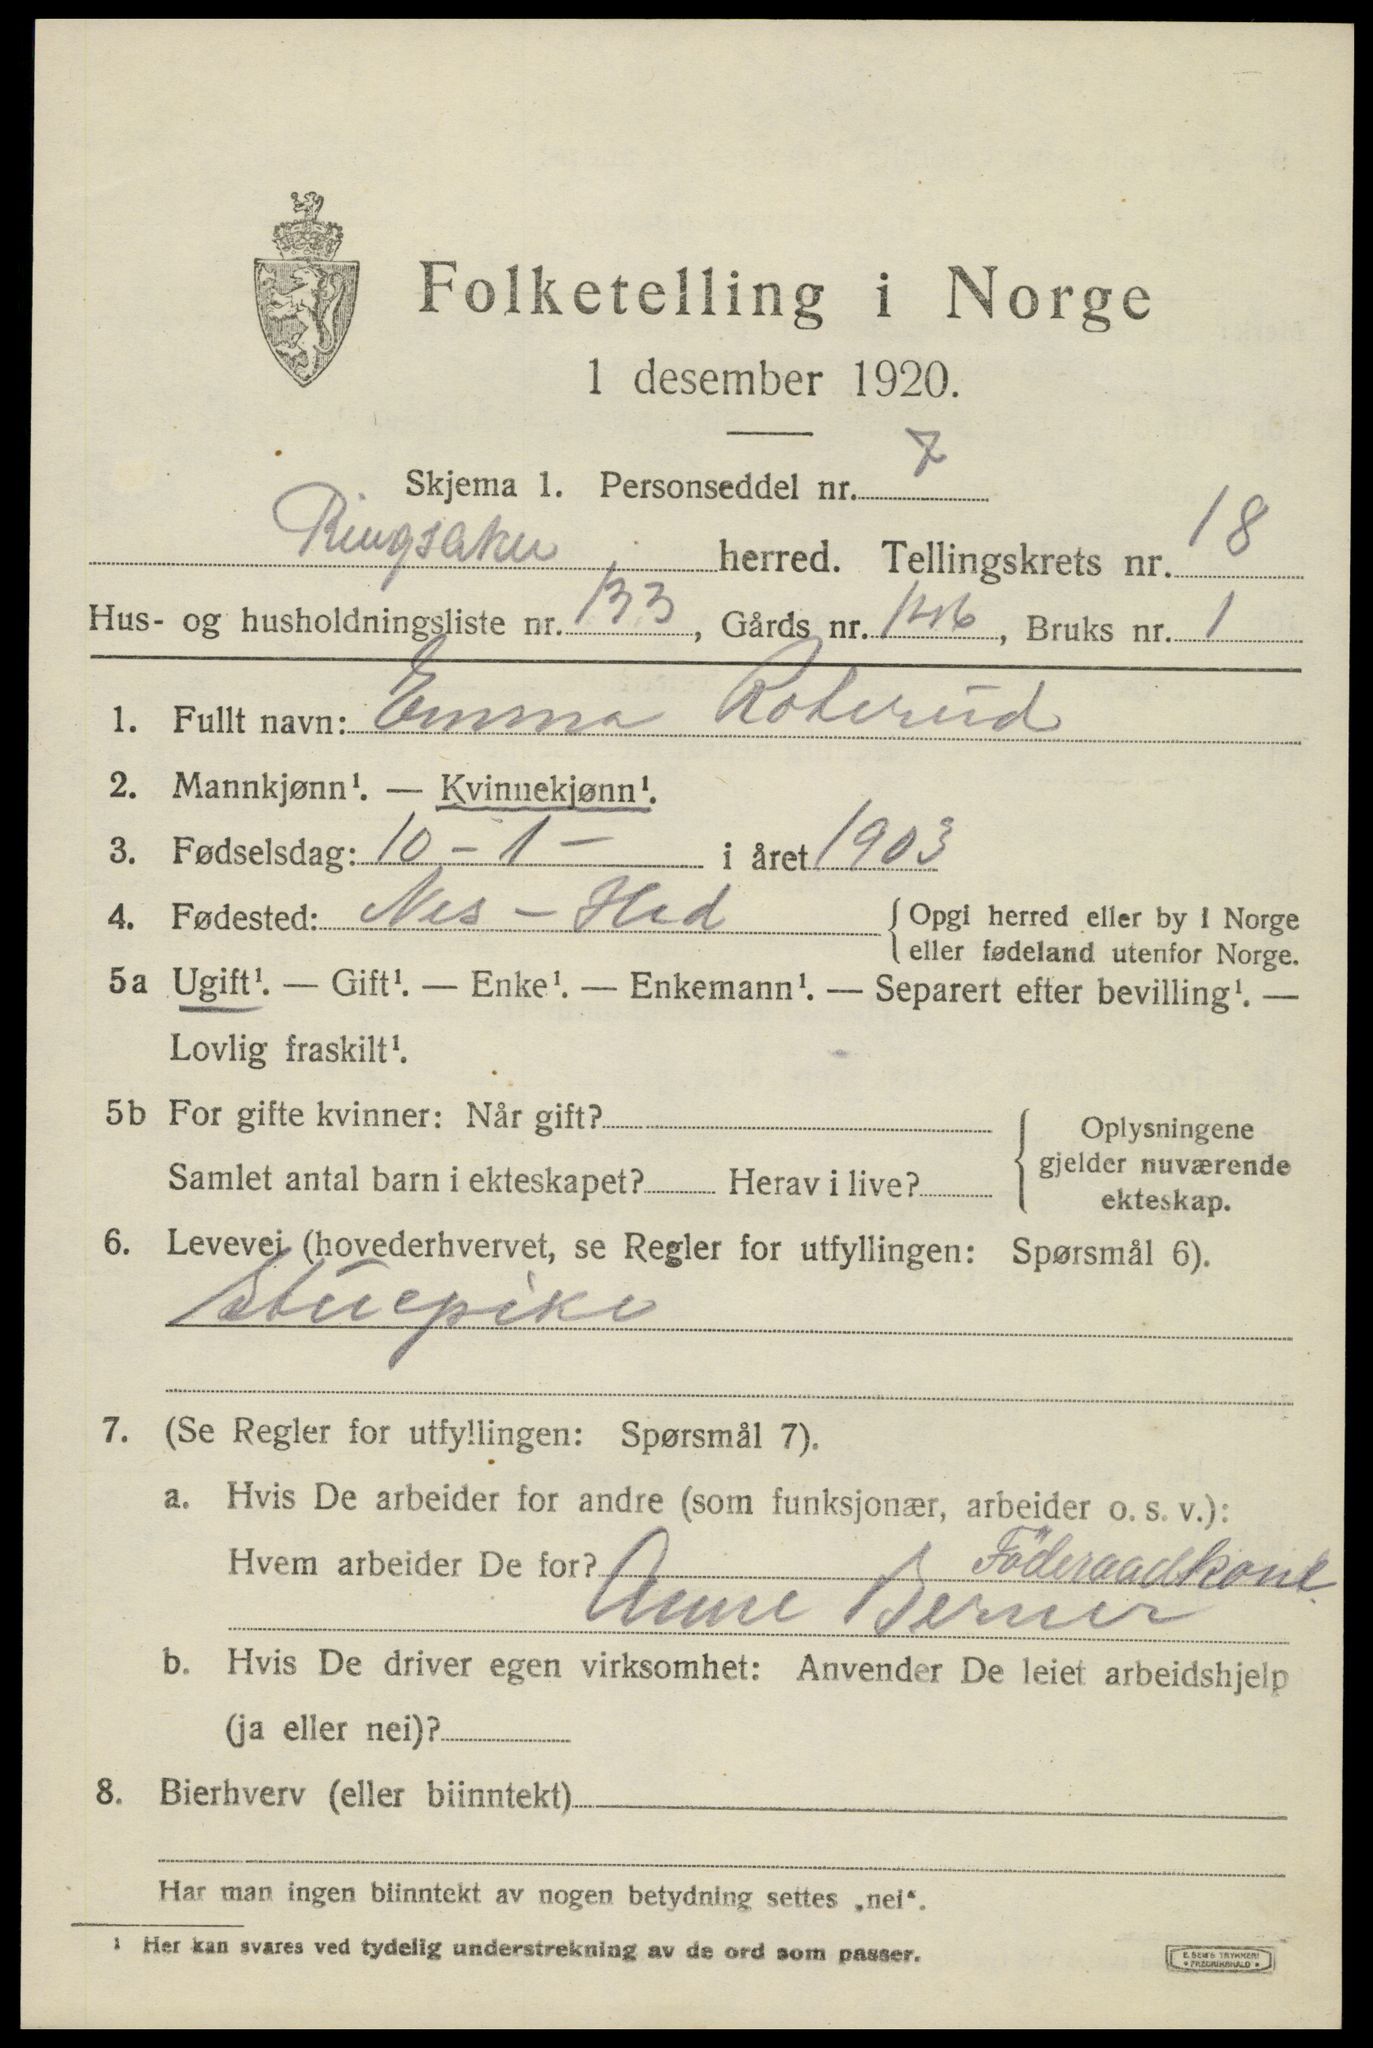 Folketelling i Norge
1 desember 1920.
Skjema 1. Personseddel nr. 7
Ringsaker herred. Tellingskrets nr. 18
Hus- og husholdningsliste nr. 133, Gårds nr. 146, Bruks nr. 1
1. Fullt navn: Emma Roterud
2. Mannkjønn¹. — Kvinnekjønn¹.
3. Fødselsdag: 10 - 1 - i året 1903
4. Fødested: Nes - Hed {Opgi herred eller by i Norge
eller fødeland utenfor Norge.
5a Ugift¹. — Gift¹. — Enke¹. — Enkemann¹. — Separert efter bevilling¹. —
Lovlig fraskilt¹.
5b For gifte kvinner: Når gift? { Oplysningene
gjelder nuværende
Samlet antal barn i ekteskapet? Herav i live? ekteskap.
6. Levevei (hovederhvervet, se Regler for utfyllingen: Spørsmål 6).
Stuepike
7. (Se Regler for utfyllingen: Spørsmål 7).
a. Hvis De arbeider for andre (som funksjonær, arbeider o. s. v.):
Hvem arbeider De for? Föderaadkone
Anne Berner
b. Hvis De driver egen virksomhet: Anvender De leiet arbeidshjelp
(ja eller nei)?
8. Bierhverv (eller biinntekt)
Har man ingen biinntekt av nogen betydning settes „nei“.
¹ Her kan svares ved tydelig understrekning av de ord som passer.
E. SEM'S TRYKKERI
FREDRIKSHALD